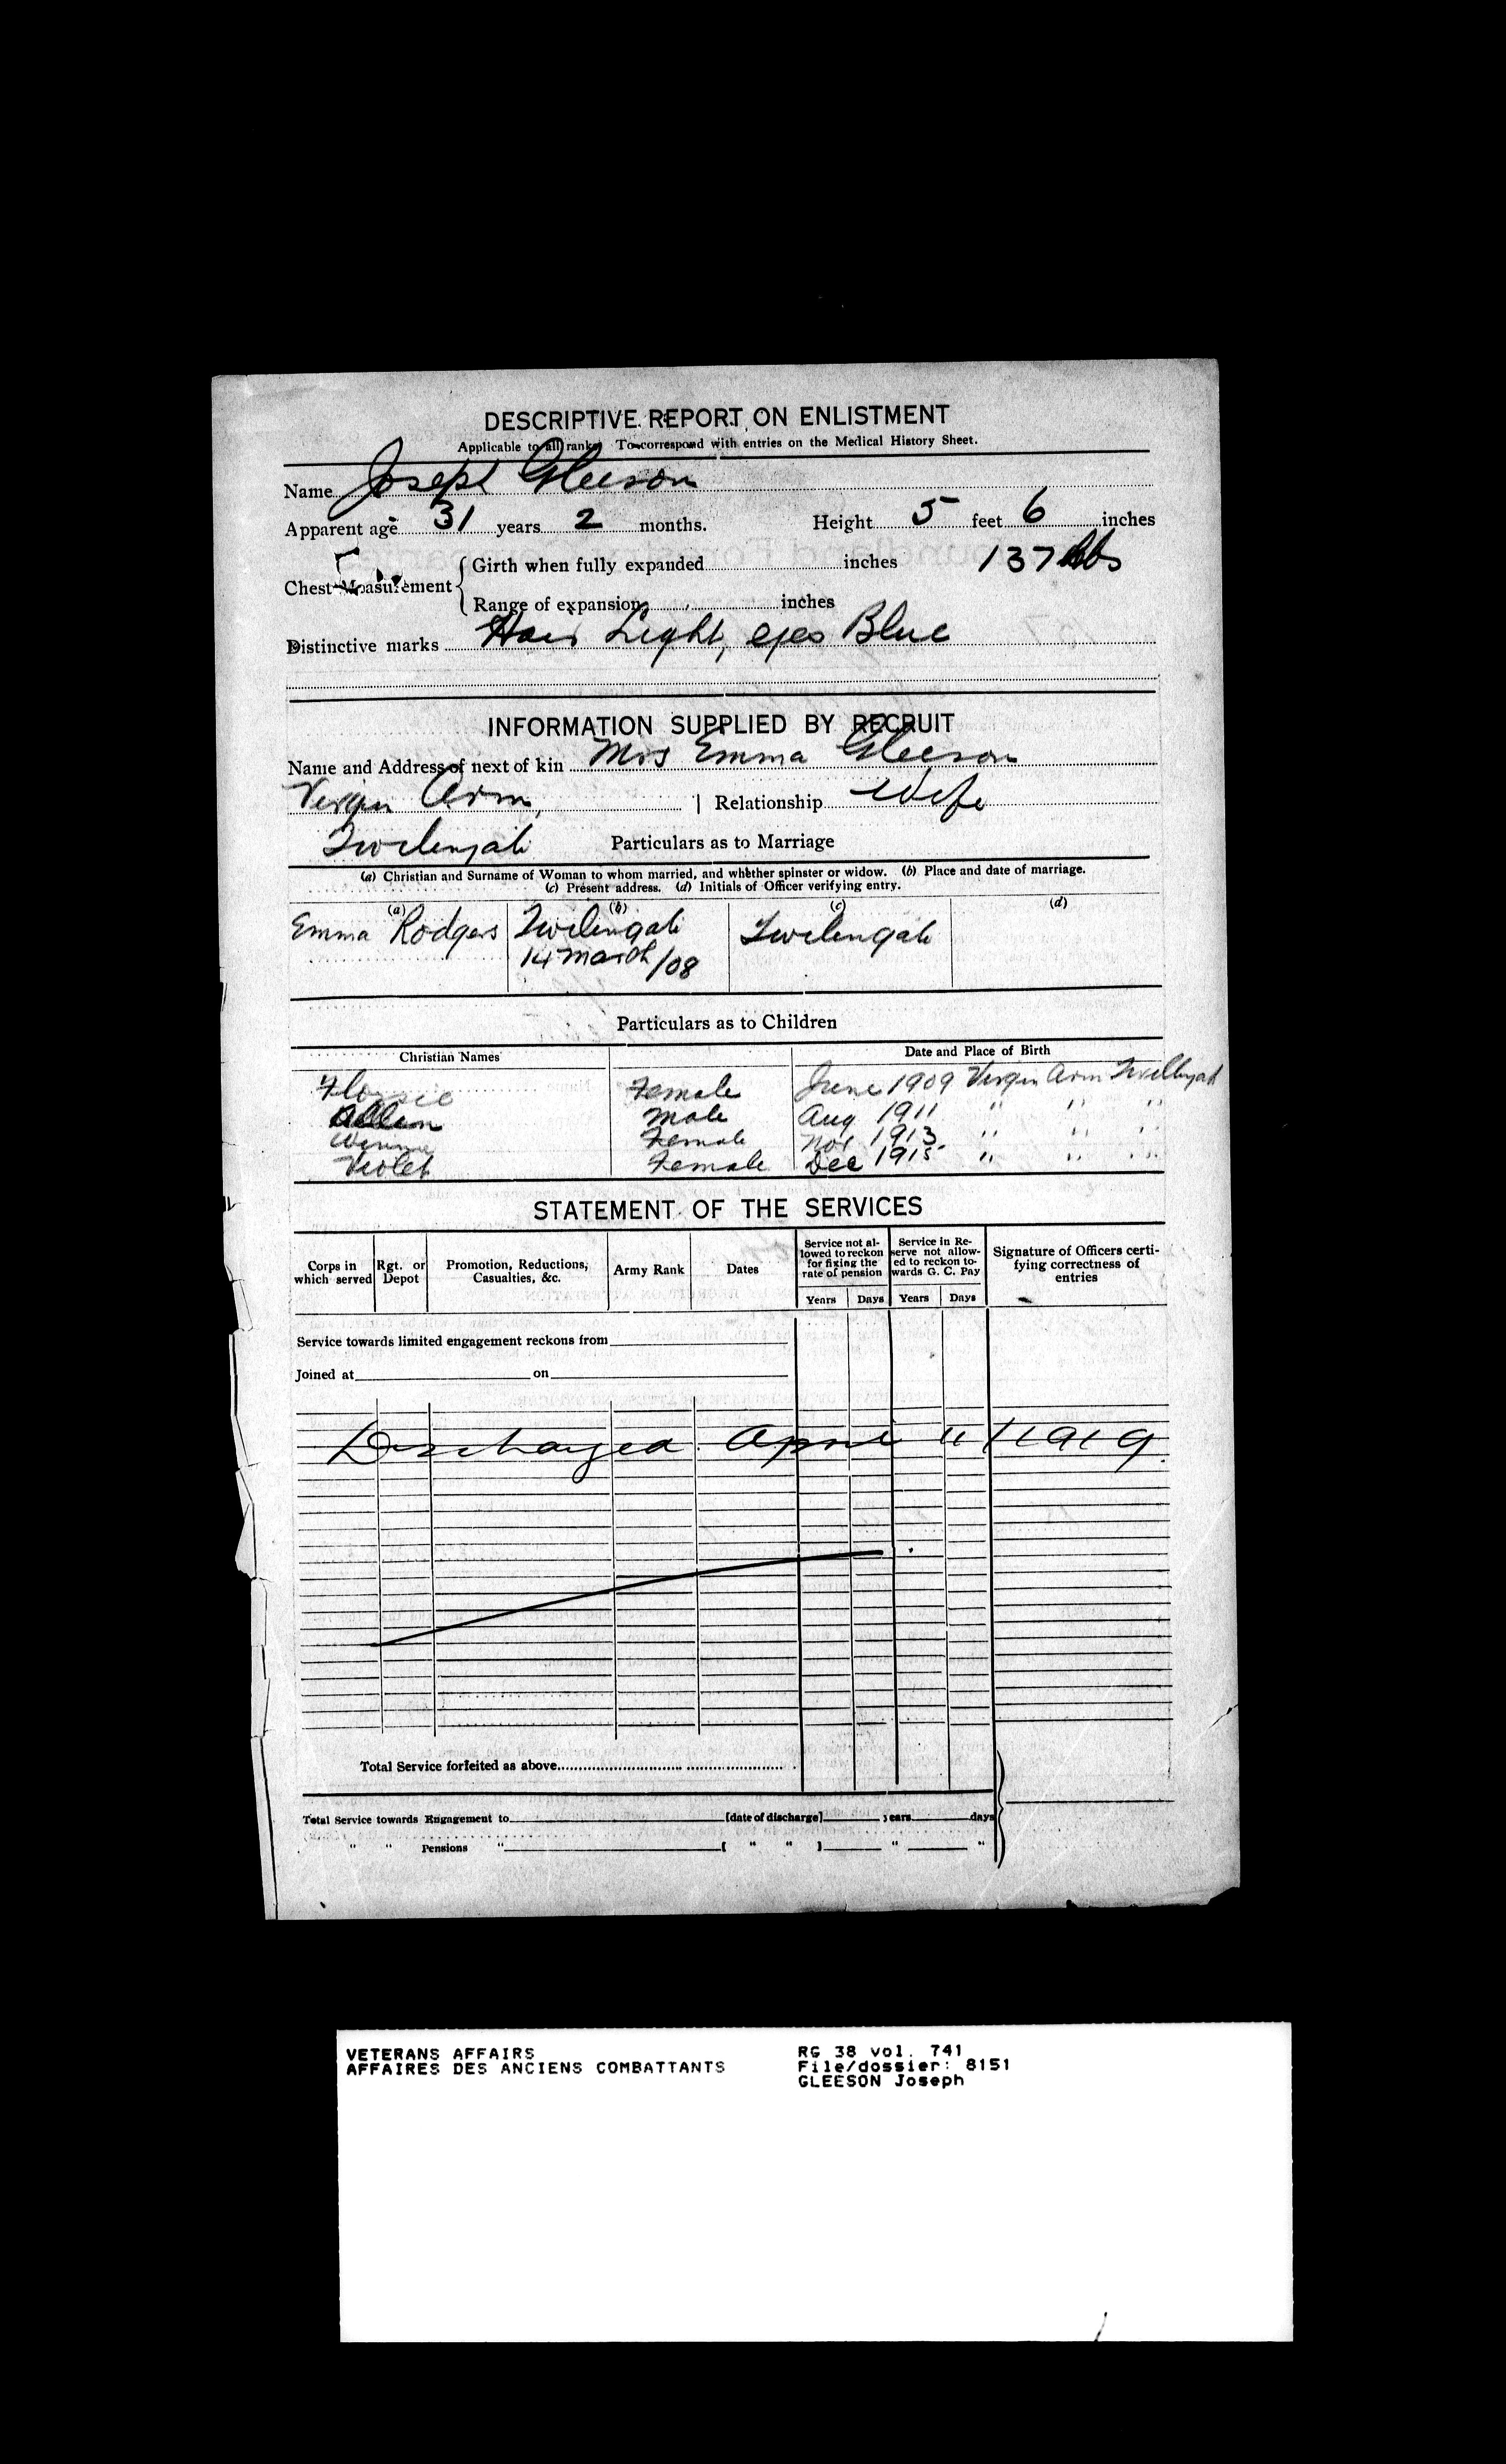 DESCRIPTIVE REPORT ON ENLISTMENT
Applicable to all ranks. To correspond with entries on the Medical History Sheet.
Name Joseph Gleeson
Apparent age 31 years 2 months. Height 5 feet 6 inches
Chest Measurement { Girth when fully expanded inches 137 lbs
Range of expansion inches
Distinctive marks Hair Light, eyes Blue
INFORMATION SUPPLIED BY RECRUIT
Name and Address of next of kin Mrs Emma Gleeson
Virgin Arm, | Relationship Wife
Twilengate Particulars as to Marriage
(a) Christian and Surname of Woman to whom married, and whether spinster or widow. (b) Place and date of marriage.
(c) Present address. (d) Initials of Officer verifying entry.
(a) (b) (c) (d)
Emma Rodgers Twilengate Twilengate
14 March /08
Particulars as to Children
Christian Names Date and Place of Birth
Flossie Female June 1909 Virgin Arm Twillingate
Allan Male Aug 1911 " " "
Female Nov 1913 " " "
Violet Female Dec 1915 " " "
STATEMENT OF THE SERVICES
Corps in which served Rgt. or Depot Promotion, Reductions, Casualties, &c. Army Rank Dates Service not allowed to reckon for fixing the rate of pension Service in Reserve not allowed to reckon towards G. C. Pay Signature of Officers certifying correctness of entries
Years Days Years Days
Service towards limited engagement reckons from
Joined at on
Discharged April 11/1919.
Total Service forfeited as above
Total Service towards Engagement to [date of discharge] years days
" " Pensions " [ " " ] " "
VETERANS AFFAIRS RG 38 vol. 741
AFFAIRES DES ANCIENS COMBATTANTS File/dossier: 8151
GLEESON Joseph